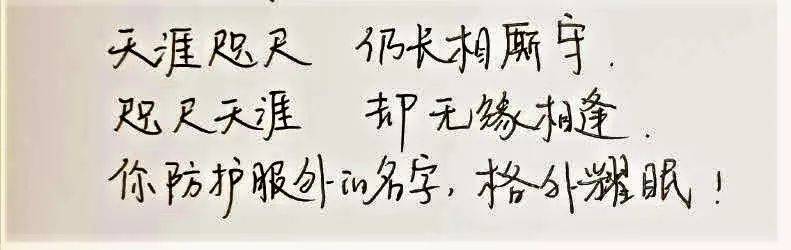 天涯咫尺 仍长相厮守.
咫尺天涯 却无缘相逢.
你防护服外的名字,格外耀眼!